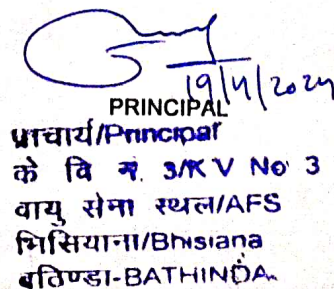 19/4/2024
PRINCIPAL
प्राचार्य/Principal
के वि नं. 3/K V No 3
वायु सेना स्थल/AFS
भिसियाना/Bhisiana
बठिण्डा-BATHINDA